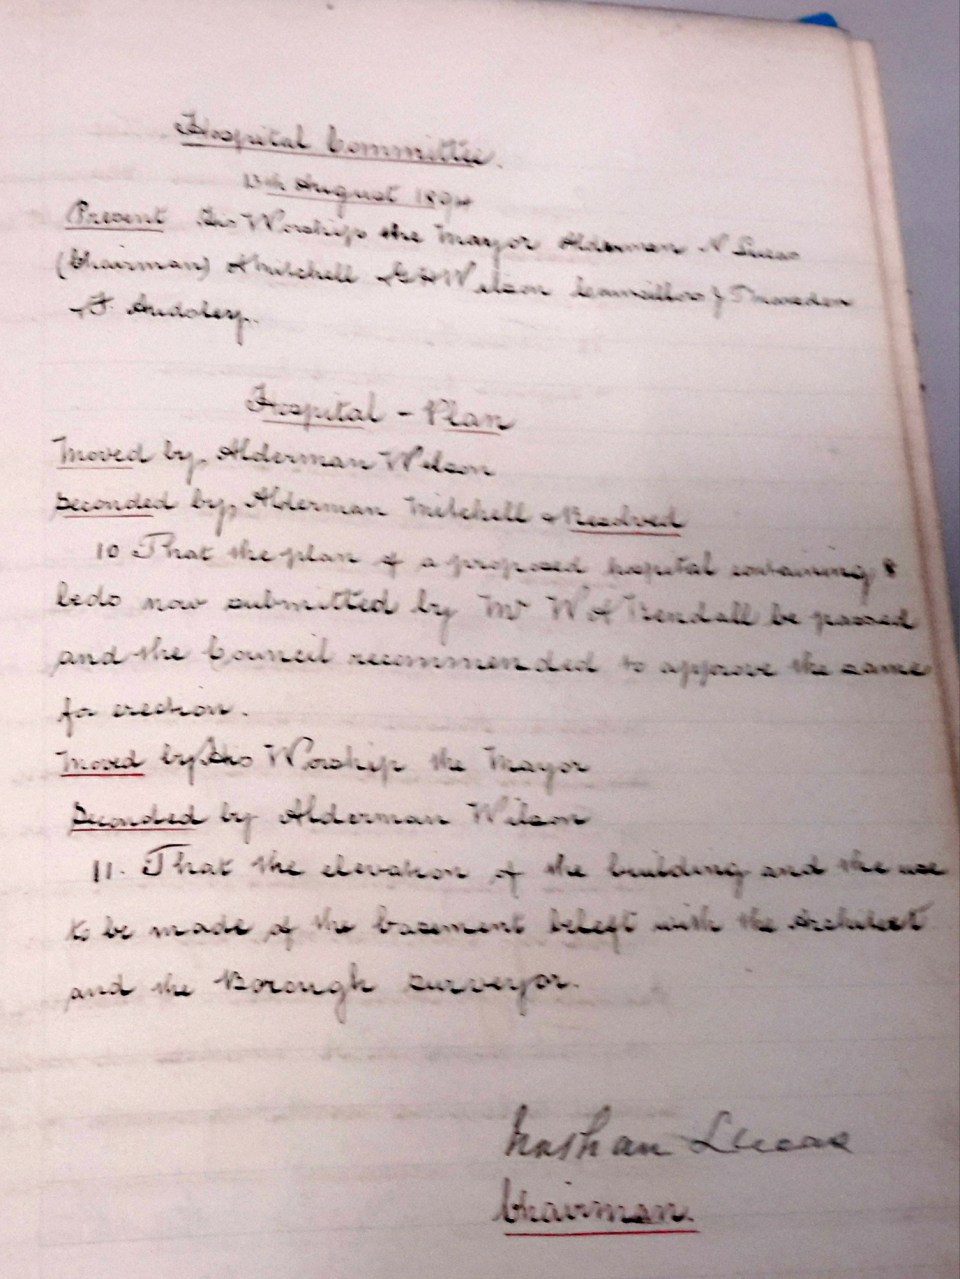 Hospital Committee.
13th August 1894
Present His Worship the Mayor Alderman N Lucas
(Chairman) A Mitchell G H Wilson Councillors J T Marsden
F. Audsley.
Hospital - Plan
Moved by Alderman Wilson
Seconded by Alderman Mitchell & Resolved
10 That the plan of a proposed hospital containing 8
beds now submitted by Mr W A Kendall be passed
and the Council recommended to approve the same
for erection.
Moved by His Worship the Mayor
Seconded by Alderman Wilson
11. That the elevation of the building and the use
to be made of the basement be left with the Architect
and the Borough Surveyor.
Nathan Lucas
Chairman.